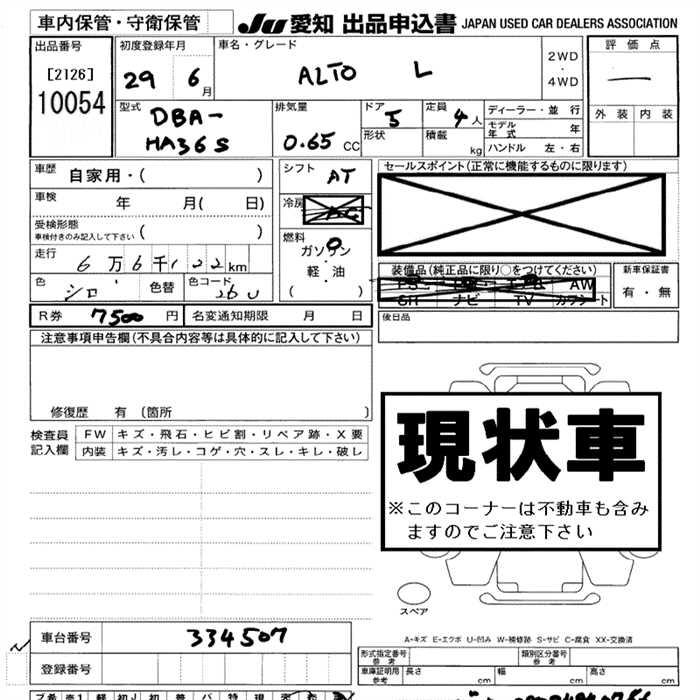 車内保管・守衛保管
JU 愛知 出品申込書 JAPAN USED CAR DEALERS ASSOCIATION
出品番号
[2126]
10054
初度登録年月
29 6月
車名・グレード
ALTO L
2WD
・
4WD
評価点
―
外装 内装
型式
DBA-
HA36S
排気量
0.65 CC
ドア
5
形状
定員
4人
積載
kg
ディーラー・並行
モデル年式 年
ハンドル 左・右
車歴 自家用・( )
車検 年 月( 日)
受検形態
車検付きのみ記入して下さい ( )
走行 6万6千122km
色 シロ 色替 色コード 26U
シフト AT
冷房 AC
燃料
ガソリン
・
軽・油
( )
セールスポイント(正常に機能するものに限ります)
装備品(純正品に限り○をつけてください)
AW
SR ナビ TV カワシート
新車保証書
有・無
後日品
R券 7500円 名変通知期限 月 日
注意事項申告欄(不具合内容等は具体的に記入して下さい)
修復歴 有 (箇所 )
検査員
記入欄
FW キズ・飛石・ヒビ割・リペア跡・X要
内装 キズ・汚レ・コゲ・穴・スレ・キレ・破レ
現状車
※このコーナーは不動車も含み
ますのでご注意下さい
スペア
A-キズ E-エクボ U-凹み W-補修跡 S-サビ C-腐食 XX-交換済
車台番号 334507
登録番号
形式指定番号
参考
類別区分番号
参考
車庫証明用
参考
長さ cm 幅 cm 高さ cm